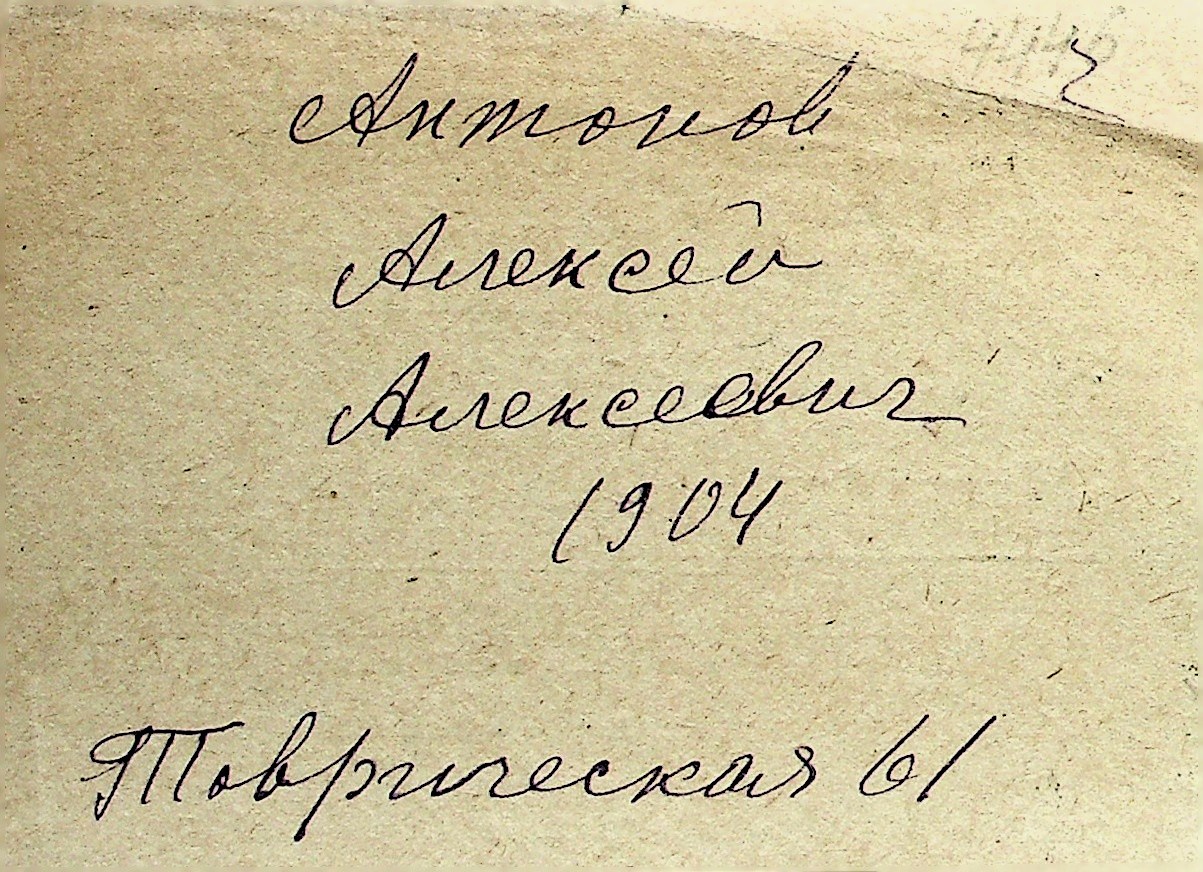 Антонов
Алексей
Алексеевич
1904
Таврическая 61